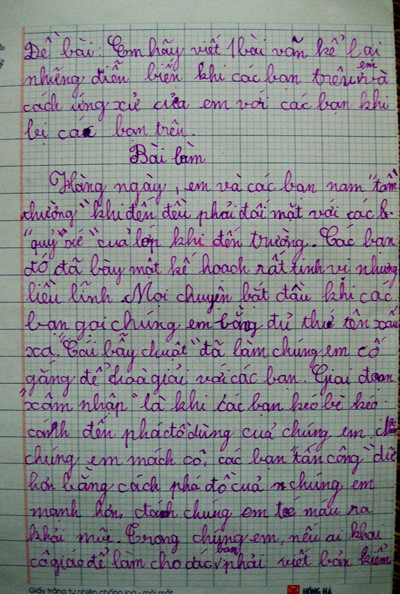 Đề bài: Em hãy viết 1 bài văn kể lại
những diễn biến khi các bạn trêu em và
cách ứng xử của em với các bạn khi
bị các bạn trêu.
Bài làm
Hàng ngày, em và các bạn nam "tầm
thường" khi đến đều phải đối mặt với các
"quỷ" xứ" của lớp khi đến trường. Các bạn
đó đã bày một kế hoạch rất tinh vi nhưng
liều lĩnh. Mọi chuyện bắt đầu khi các
bạn gọi chúng em bằng đủ thứ tên xấu
xa. "Cái bẫy chuột" đã làm chúng em cố
gắng để hoà giải với các bạn. Giai đoạn
"xâm nhập" là khi các bạn kéo bè kéo
cánh đến phá đồ dùng của chúng em.
chúng em mách cô, các bạn "tấn công" dữ
hơn bằng cách phá đồ của chúng em
mạnh hơn, đánh chúng em toé máu ra
khỏi mũi. Trong chúng em, nếu ai khai
cô giáo để làm cho các bạn phải viết bản kiểm
Giấy trắng tự nhiên chống loá - mỏi mắt
HỒNG HÀ